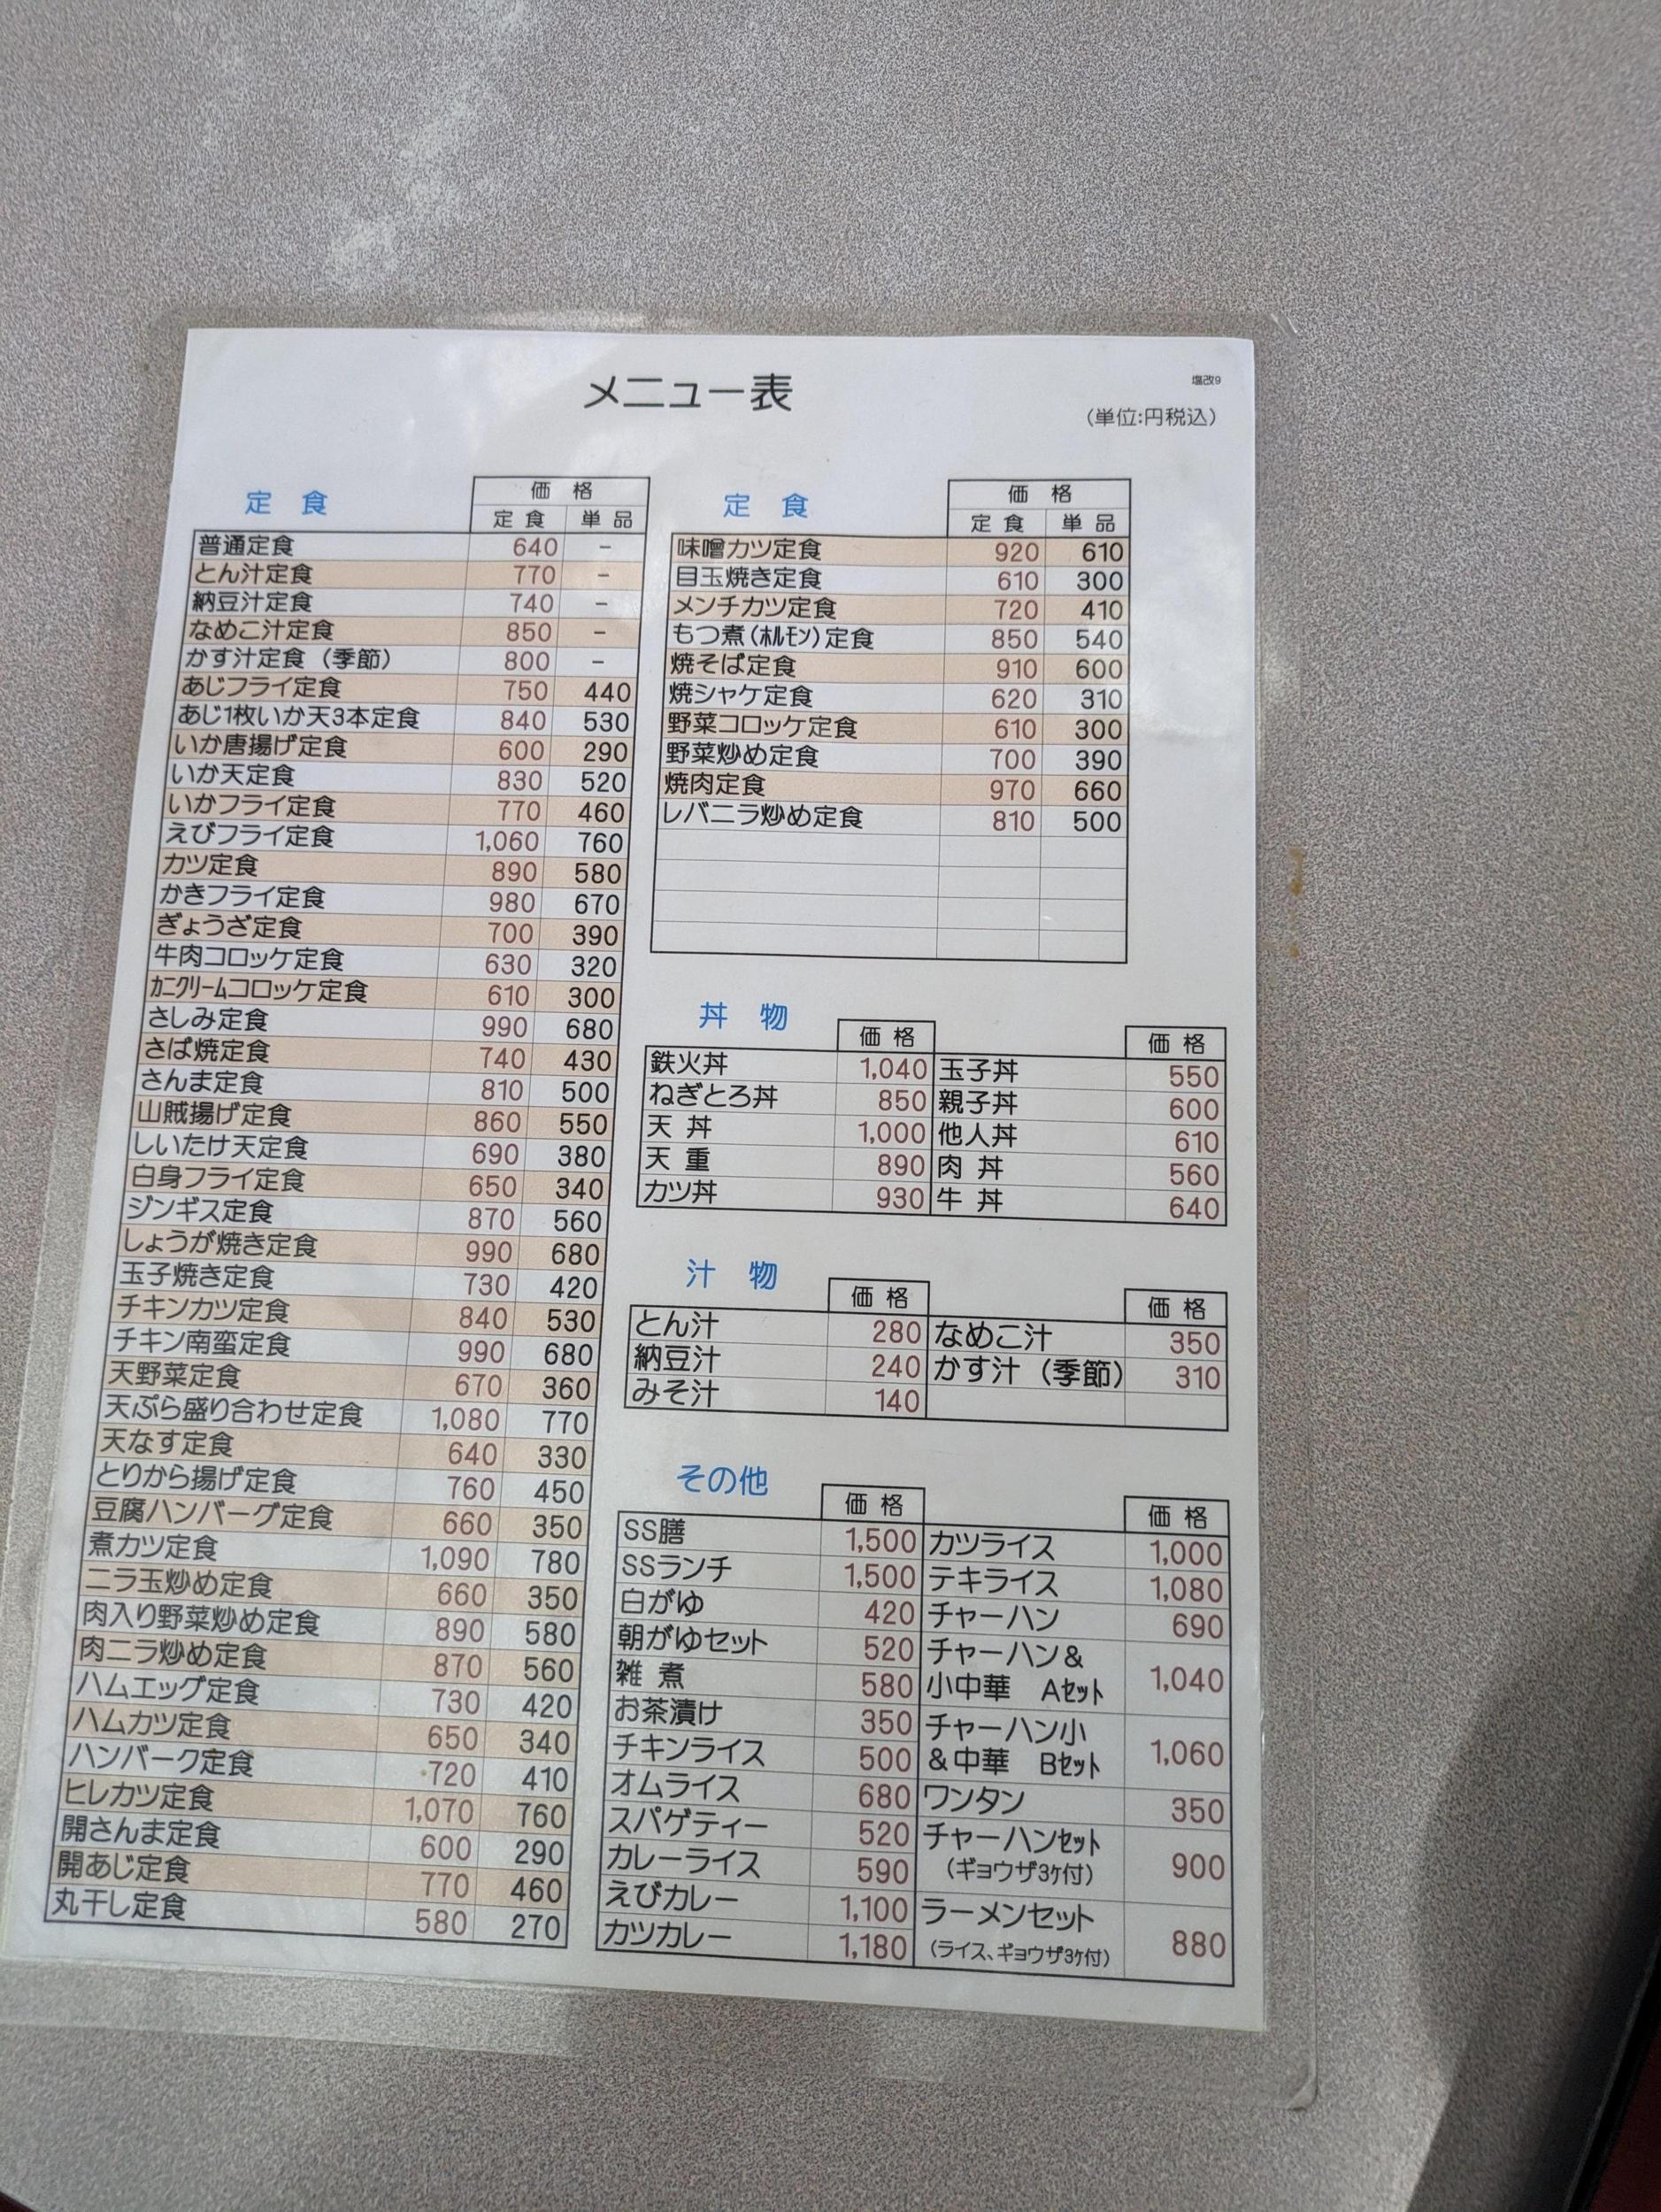 メニュー表
塩改9
(単位:円税込)
定 食
価 格
定 食 単 品
普通定食 640 －
とん汁定食 770 －
納豆汁定食 740 －
なめこ汁定食 850 －
かす汁定食（季節） 800 －
あじフライ定食 750 440
あじ1枚いか天3本定食 840 530
いか唐揚げ定食 600 290
いか天定食 830 520
いかフライ定食 770 460
えびフライ定食 1,060 760
カツ定食 890 580
かきフライ定食 980 670
ぎょうざ定食 700 390
牛肉コロッケ定食 630 320
ｶﾆｸﾘｰﾑコロッケ定食 610 300
さしみ定食 990 680
さば焼定食 740 430
さんま定食 810 500
山賊揚げ定食 860 550
しいたけ天定食 690 380
白身フライ定食 650 340
ジンギス定食 870 560
しょうが焼き定食 990 680
玉子焼き定食 730 420
チキンカツ定食 840 530
チキン南蛮定食 990 680
天野菜定食 670 360
天ぷら盛り合わせ定食 1,080 770
天なす定食 640 330
とりから揚げ定食 760 450
豆腐ハンバーグ定食 660 350
煮カツ定食 1,090 780
ニラ玉炒め定食 660 350
肉入り野菜炒め定食 890 580
肉ニラ炒め定食 870 560
ハムエッグ定食 730 420
ハムカツ定食 650 340
ハンバーク定食 720 410
ヒレカツ定食 1,070 760
開さんま定食 600 290
開あじ定食 770 460
丸干し定食 580 270
定 食
価 格
定 食 単 品
味噌カツ定食 920 610
目玉焼き定食 610 300
メンチカツ定食 720 410
もつ煮(ﾎﾙﾓﾝ)定食 850 540
焼そば定食 910 600
焼シャケ定食 620 310
野菜コロッケ定食 610 300
野菜炒め定食 700 390
焼肉定食 970 660
レバニラ炒め定食 810 500
丼 物
価 格 価 格
鉄火丼 1,040 玉子丼 550
ねぎとろ丼 850 親子丼 600
天 丼 1,000 他人丼 610
天 重 890 肉 丼 560
カツ丼 930 牛 丼 640
汁 物
価 格 価 格
とん汁 280 なめこ汁 350
納豆汁 240 かす汁（季節） 310
みそ汁 140
その他
価 格
SS膳 1,500
SSランチ 1,500
白がゆ 420
朝がゆセット 520
雑 煮 580
お茶漬け 350
チキンライス 500
オムライス 680
スパゲティー 520
カレーライス 590
えびカレー 1,100
カツカレー 1,180
価 格
カツライス 1,000
テキライス 1,080
チャーハン 690
チャーハン＆
小中華 Aｾｯﾄ 1,040
チャーハン小
＆中華 Bｾｯﾄ 1,060
ワンタン 350
チャーハンｾｯﾄ
(ギョウザ3ｹ付) 900
ラーメンセット
(ライス、ギョウザ3ｹ付) 880